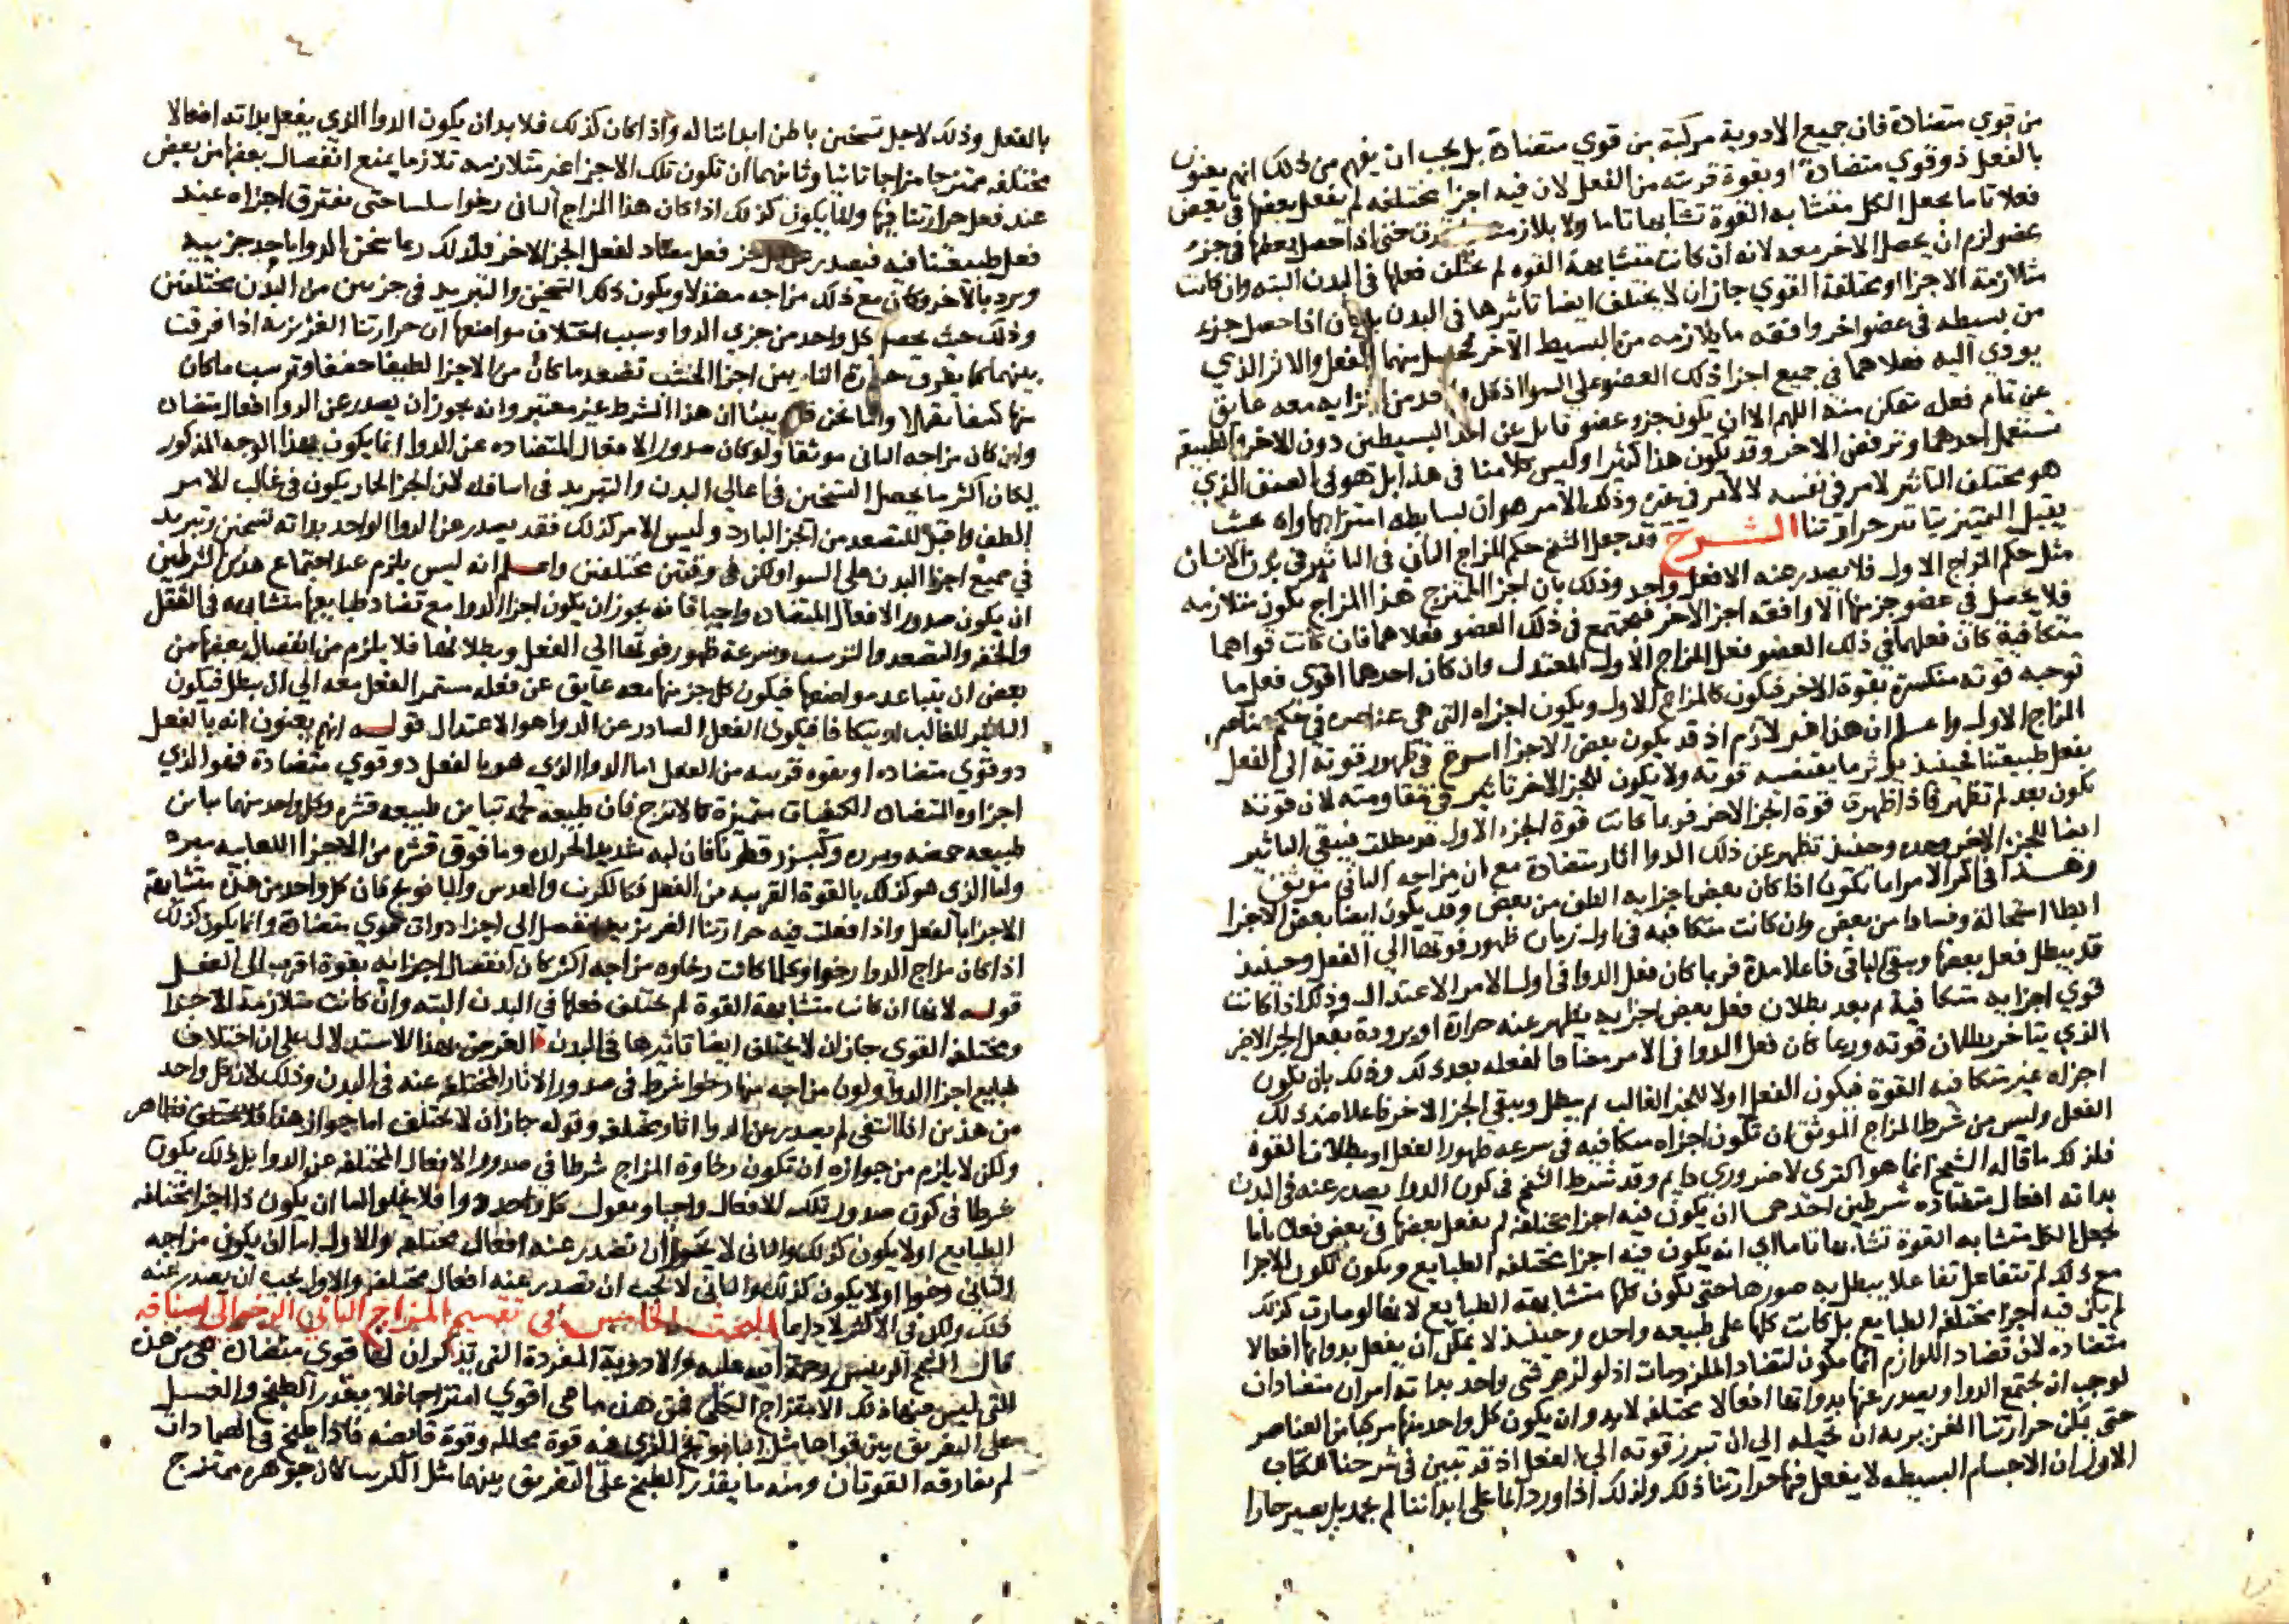 من قوي متضادة فان جميع الادوية مركبة من قوي متضادة بل يجب ان يفهم من ذلك انهم يعنون
بالفعل ذو قوي متضادة او بقوة قريبة من الفعل لان فيه اجزا مختلفه لم يفعل بعضها في بعض
فعلا تاما يجعل الكل متشابه القوة تشابها تاما ولا تلازمت حتى اذا حصل بعضها في جزء
عضو لزم ان يحصل الاخر معه لانه ان كانت متشابهة القوه لم يختلف فعلها في البدن البته وان كانت
متلازمة الاجزا او مختلفة القوي جاز ان لا يختلف ايضا تاثيرها في البدن بل كان اذا حصل جزء
من بسيطه في عضو اخر وافقه ما يلازمه من البسيط الاخر فحصل منهما الفعل والاثر الذي
يودي اليه فعلاهما في جميع اجزا ذلك العضو علي السوا اذ كل واحد من اجزايه معه عايق
عن تمام فعله متمكن منه اللهم الا ان يكون جزو عضو قابل عن احد البسيطين دون الاخر والطبيعة
تستعمل احدهما وترفض الاخر وقد يكون هذا كثيرا وليس كلامنا في هذا بل هو في الصنف الذي
هو مختلف التاثير لامر في نفسه لا لامر في غيره وذلك الامر هو ان بسايطه امتزاجها واه بحيث
يقبل التميز بتاثير حرارتنا الشرح قد جعل الشيخ حكم المزاج الثاني في التاثير في بدن الانسان
مثل حكم المزاج الاول فلا يصدر عنه الا فعل واحد وذلك بان اجزا الممتزج هذا المزاج يكون متلازمه
فلا يحصل في عضو جز منها الا وافقه اجزا الاخر فيجتمع في ذلك العضو فعلاهما فان كانت قواهما
متكافية كان فعلهما في ذلك العضو فعل المزاج الاول المعتدل وان كان احدهما اقوي فعل ما
توجبه قوته منكسرة بقوة الاخر فيكون كالمزاج الاول ويكون اجزاه التي هي عناصره في حكم عناصر
المزاج الاول واعلم ان هذا غير لازم اذ قد يكون بعض الاجزا اسرع في ظهور قوته الى الفعل
بفعل طبيعتنا فحينيذ يوثر ما يقتضيه قوته ولا يكون للجز الاخر تاثير في مقاومته لان قوته
تكون بعد لم تظهر فاذا ظهرت قوة الجز الاخر فربما كانت قوة الجزء الاول قد بطلت فيبقي التاثير
ايضا للجزء الاخر وحده وحينيذ تظهر عن ذلك الدوا اثار متضادة مع ان مزاجه الثاني موثق
وهذا في اكثر الامر انما يكون اذا كان بعض اجزايه الطف من بعض وقد يكون ايضا بعض الاجزا
ابطا استحالة وفسادا من بعض وان كانت متكافيه في اول زمان ظهور قوتها الي الفعل وحينيذ
قد يبطل فعل بعضها ويبقي الباقي فاعلا مدة فربما كان فعل الدوا في اول الامر الاعتدال وذلك اذا كانت
قوي اجزايه متكافية ثم بعد بطلان فعل بعض اجزايه يظهر عنه حرارة او برودة بفعل الجز الاخر
الذي يتاخر بطلان قوته وربما كان فعل الدوا في الامر مضادا لفعله بعد ذلك وذلك بان يكون
اجزاه غير متكافيه القوة فيكون الفعل اولا للجز الغالب ثم يبطل ويبقي الجز الاخر فاعلا ضد ذلك
الفعل وليس من شرط المزاج الموثق ان تكون اجزاه متكافيه في سرعه ظهور الفعل او بطلان القوة
فلذلك ما قاله الشيخ انما هو اكثري لا ضروري دايم وقد شرط الشيخ في كون الدوا يصدر عنه في البدن
بذاته افعال متضاده شرطين احدهما ان يكون فيه اجزا مختلفه لم يفعل بعضها في بعض فعلا تاما
يجعل الكل متشابه القوة تشابها تاما اي انه يكون فيه اجزا مختلفه الطبايع ويكون تكون الاجزا
مع ذلك لم تتفاعل تفاعلا يبطل به صورها حتى يكون كلها متشابهة الطبايع لانها لو صارت كذلك
لم يكن فيه اجزا مختلفه الطبايع بل كانت كلها علي طبيعه واحده وحينيذ لا يمكن ان يفعل بذواتها افعالا
متضاده لان تضاد اللوازم انما يكون لتضاد الملزومات اذ لو لزم شي واحد بذاته امران متضادان
لوجب ان يجتمع الدوا ويصدر عنها بذواتها افعالا مختلفه لا بد وان يكون كل واحد منها مركبا من العناصر
حتى يمكن حرارتنا الغريزيه ان تحيله الي ان تبرز قوته الي الفعل اذ قد تبين في شرحنا للكتاب
الاول ان الاجسام البسيطه لا يفعل فيها حرارتنا ذلك ولذلك اذا ورد الما علي ابداننا لم يجمد بل يصير حارا
بالفعل وذلك لاجل تسخين باطن ابداننا له واذا كان كذلك فلا بد ان يكون الدوا الذي يفعل بذاته افعالا
مختلفه ممتزجا مزاجا ثانيا وثانيهما ان تكون تلك الاجزا غير متلازمه تلازما يمنع انفصال بعضها من بعض
عند فعل حرارتنا فيها وانما يكون كذلك اذا كان هذا المزاج الثاني رخوا سلسا حتى يفترق اجزاه عند
فعل طبيعتنا فيه فيصدر عن كل جز فعل مضاد لفعل الجز الاخر فلذلك ربما سخن الدوا باحد جزييه
وبرد بالاخر وكان مع ذلك مزاجه معتدلا ويكون ذلك التسخين والتبريد في جزين من البدن مختلفين
وذلك حيث يحصل كل واحد من جزي الدوا وسبب اختلاف مواضعها ان حرارتنا الغريزية اذا فرقت
بينهما كما يفرق حرارة النار بين اجزا الخشب تصعد ما كان من الاجزا لطيفا خفيفا وترسب ما كان
منها كثيفا ثقيلا واما نحن فقد بينا ان هذا الشرط غير معتبر وانه يجوز ان يصدر عن الدوا افعال متضاده
وان كان مزاجه الثاني موثقا ولو كان صدور الافعال المتضاده عن الدوا انما يكون بهذا الوجه المذكور
لكان اكثر ما يحصل التسخين في اعالي البدن والتبريد في اسافله لان الجز الحار يكون في غالب الامر
الطف واقبل للتصعد من الجز البارد وليس الامر كذلك فقد يصدر عن الدوا الواحد بذاته تسخين وتبريد
في جميع اجزا البدن علي السوا ولكن في وقتين مختلفين واعلم انه ليس يلزم عند اجتماع هذين الشرطين
ان يكون صدور الافعال المتضاده واجبا فانه يجوز ان يكون اجزا الدوا مع تضاد طبايعها متشابهه في الثقل
والخفه والتصعد والترسب وسرعة ظهور قوتها الي الفعل وبطلانها فلا يلزم من انفصال بعضها من
بعض ان يتباعد مواضعها فيكون كل جز منها معه عايق عن فعله مستمر الفعل معه الي ان يبطل فيكون
التاثير للغالب او يتكافا فيكون الفعل الصادر عن الدوا هو الاعتدال قوله انهم يعنون انه بالفعل
ذو قوي متضاده او بقوه قريبه من الفعل اما الدوا الذي هو بالفعل ذو قوي متضادة فهو الذي
اجزاوه المتضاده الكيفيات متميزة كالاترج فان طبيعه لحمه تباين طبيعه قشره وكل واحد منهما يباين
طبيعه حمضه وبزره وكبزر قطونا فان لبه شديد الحرارة وما فوق قشره من الاجزا اللعابيه مبرد
واما الذي هو كذلك بالقوة القريبه من الفعل فكالكرنب والعدس والبابونج فان كل واحد من هذه متشابهة
الاجزا بالفعل واذا فعلت فيه حرارتنا الغريزيه انفصل الي اجزا ذوات قوي متضادة وانما يكون كذلك
اذا كان مزاج الدوا رخوا وكلما كانت رخاوه مزاجه اكثر كان انفصال اجزايه بقوة اقرب الى الفعل
قوله لانها ان كانت متشابهة القوة لم يختلف فعلها في البدن البته وان كانت متلازمة الاجزا
ومختلفه القوي جاز ان لا يختلف ايضا تاثيرها في البدن الغرض بهذا الاستدلال علي ان اختلاف
طبايع اجزا الدوا وكون مزاجه منها رخوا شرط في صدور الاثار المختلفه عنه في البدن وذلك لان كل واحد
من هذين اذا انتفى لم يصدر عن الدوا اثار مختلفه وقوله جاز ان لا يختلف اما جواز هذا فلا يختلف فظاهر
ولكن لا يلزم من جوازه ان تكون رخاوة المزاج شرطا في صدور الافعال المختلفه عن الدوا بل ذلك يكون
شرطا في كون صدور تلك الافعال واجبا ويقول كل واحد دوا فلا يخلوا اما ان يكون ذا اجزا مختلفه
الطبايع او لا يكون كذلك والثاني لا يجوز ان تصدر عنه افعال مختلفه والاول اما ان يكون مزاجه
الثاني رخوا او لا يكون كذلك والثاني لا يجب ان تصدر عنه افعال مختلفه والاول يجب ان يصدر عنه
ذلك ولكن في الاكثر لا دايما البحث الخامس في تقسيم المزاج الثاني الرخو الى اصنافه
قال الشيخ الرييس رحمة الله عليه والادوية المفردة التي تذكر ان لها قوي متضاده هي من هذه
التي ليس فيها ذلك الامتزاج الكلي فمن هذه ما هي اقوي امتزاجا فلا يقدر الطبخ والغسل
على التفريق بين قواها مثل البابونج الذي فيه قوة محلله وقوة قابضه فاذا طبخ في الضمادات
لم يفارقه القوتان ومنه ما يقدر الطبخ على التفريق بينهما مثل الكرنب كان جوهره ممتزج